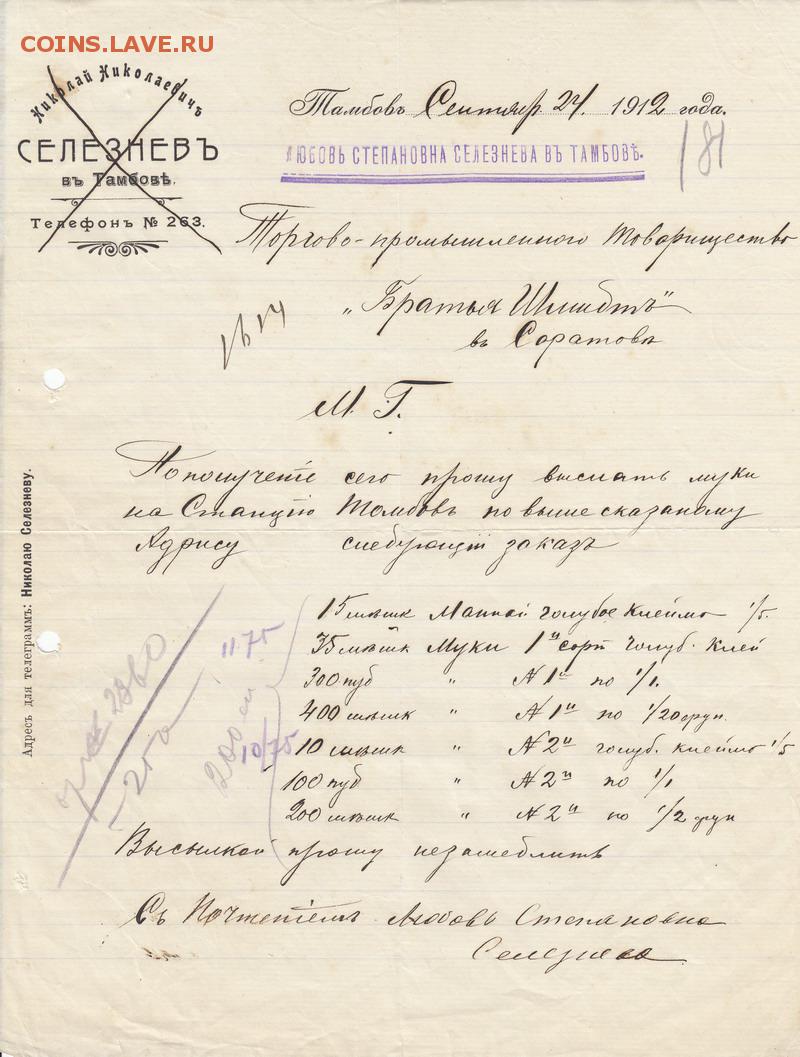 COINS.LAVE.RU
Николай Николаевичъ
СЕЛЕЗНЕВЪ
въ Тамбовѣ.
Телефонъ № 263.
Тамбовъ Сентябр 24. 1912 года.
ЛЮБОВЬ СТЕПАНОВНА СЕЛЕЗНЕВА ВЪ ТАМБОВѢ.
181
Торгово-промышленного товарищество
„Братья Шмидтъ"
въ Саратовѣ
1614
М. Г.
По получетіе сего прошу выслать муки
на Станцію Тамбовъ по выше сказаному
Адрису следующій заказъ
15 мѣшк Манной голубое клеймо 1/5.
35 мѣшк Муки 1й сорт голуб. Клей
300 пуд " № 1й по 1/1.
400 мѣшк " № 1й по 1/20 фун.
10 мѣшк " № 2й голуб. клеймо 1/5
100 пуд " № 2й по 1/1
200 мѣшк " № 2й по 1/2 фун
1175
10/75
Высылкой прошу незамедлить
Съ Почтетіемъ Любовь Степановна
Селезнева
Адресъ для телеграммъ: Николаю Селезневу.